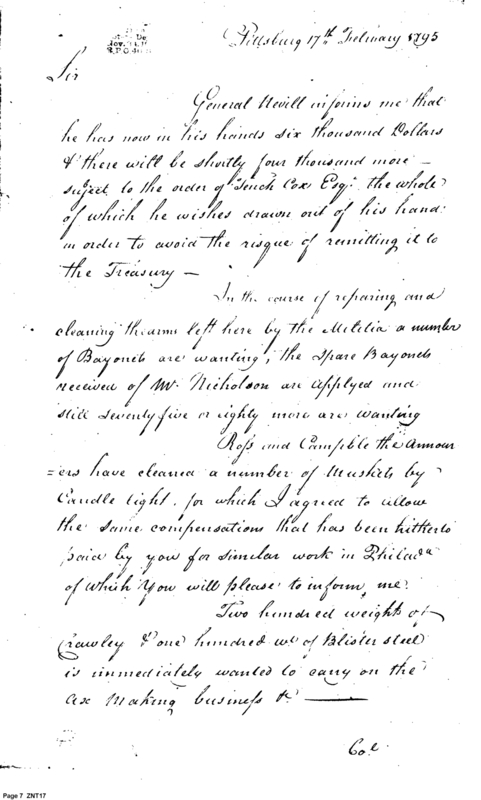 Pittsburg 17th February 1795
Sir
General Nevill informs me that
he has now in his hands six thousand Dollars
& there will be shortly four thousand more –
subject to the order of Tench Cox Esqr. the whole
of which he wishes drawn out of his hand
in order to avoid the risque of remitting it to
the Treasury –
In the course of repairing and
cleaning the arms left here by the Militia a number
of Bayonets are wanting, the Spare Bayonets
received of Mr. Nicholson are applyed and
still seventy five or eighty more are wanting
Ross and Campble the Armour
=ers have cleaned a number of Muskets by
Candle light, for which I agreed to allow
the same compensations that has been hitherto
paid by you for similar work in Philada
of which you will please to inform me.
Two hundred weights of
Crawley & one hundred wt. of Blister steel
is immediately wanted to carry on the
ax Making business &c
Col.
Page 7 ZNT17